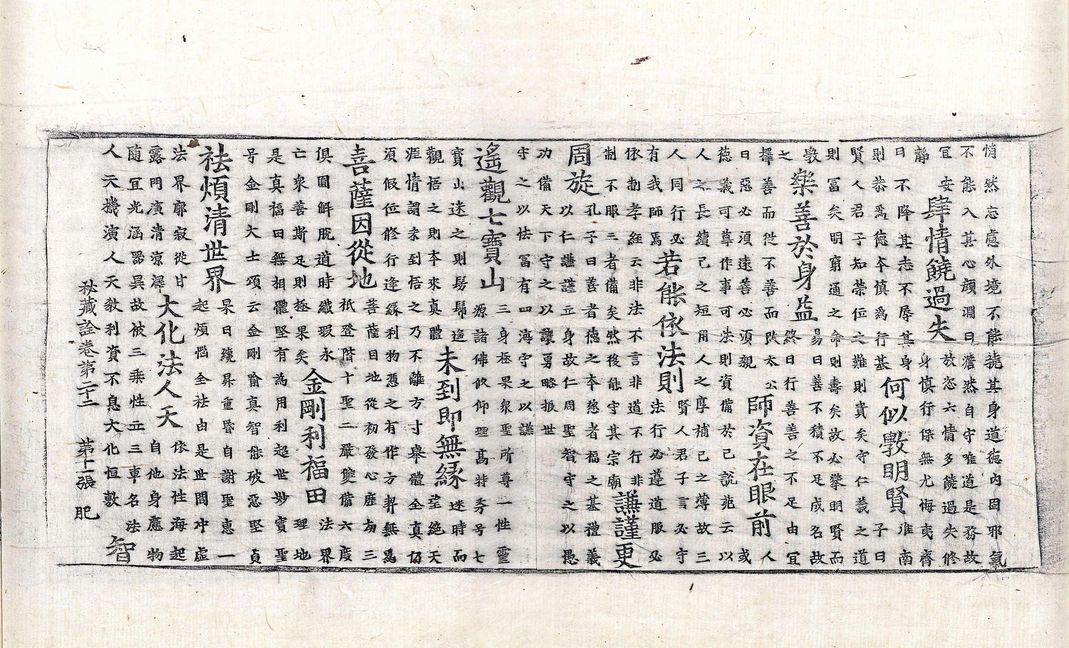 悄然忘慮外境不能撓其身道德內固邪氣
不能入其心顏淵曰澹然自守唯道是務故
宜安
靜
肆情饒過失
故恣六情多饒過失修
身慎行保無尤悔夷齊
曰不降其志不辱其身
則恭為德本慎為行基
何似斅明賢
淮南
子曰
賢人君子知榮位之難則實矣守仁義之道
則冨矣明窮通之命則壽矣故必擊明賢而
斅
之
樂善於身益
易曰善不積不足成名故
終日行善善之不足由宜
擇善而從不善而改太公
曰惡必須遠善必須親
師資在眼前
人
或
德義可尊作事可法則資備於己説兆云以
人之長續己之短用人之厚補己之薄故三
人同行必
有我師焉
若能依法則
賢人君子言必守
法行必遵道服必
依勑孝經云非法不言非道不行非
制不眼三者備矣然後能守其宗廟
謙謹更
周旋
孔子曰善者德之本慈者福之基禮義
以仁謙謹立身故仁周聖智守之以愚
功備天下守之以讓勇略振世
守之以怯冨有四海守之以謙
遙觀七寳山
三身極果衆聖所尊一性靈
源諸佛欽仰理髙特秀号七
寳山迷之則鬅鬙遠
觀悟之則本來真體
未到即無緣
迷時而
望絶天
涯情謂未到悟之乃不離方寸舉體全真仍
須假位修行逢緣利物憑之有作方契無為
菩薩因從地
菩薩目地從初發心歷劫三
祇登階十聖二嚴雙備六度
俱圓解脫道時纖瑕永
亡衆善斯足則極果矣
金剛利福田
法界
理地
是真福田無相體堅有為用利起世珍寳聖
号金剛大士頌云金剛喻真智能破惡堅貞
祛煩清世界
杲日殘昇重昏自謝聖惠一
起煩惱全祛由是世間冲虛
法界廓寂從甘
露門廣清涼解
大化法人天
依法性海起
自他身應物
隨宜光涵器異故被三乘性立三專名法
人天機演人天敎利資不息大化恒敷
秘藏詮卷第二十二 第十二張 肥
智